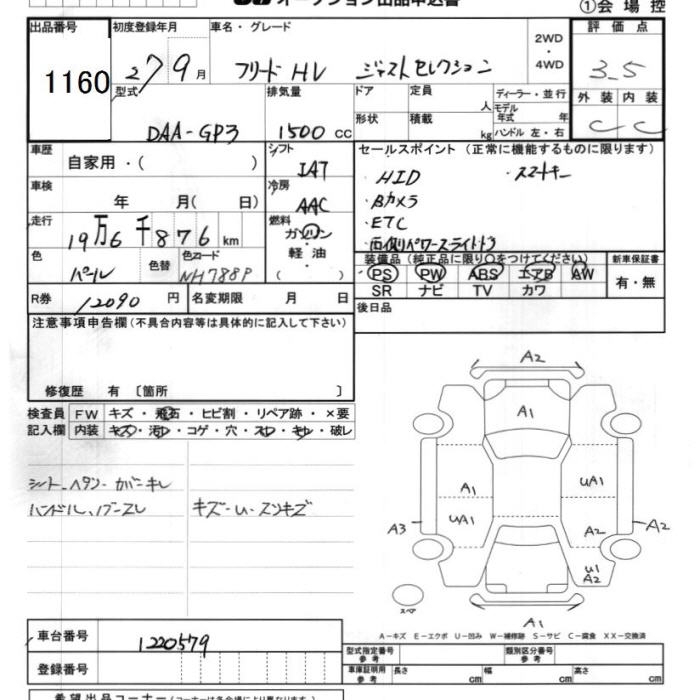 オークション出品申込書
①会場控
出品番号
1160
初度登録年月
27 9月
車名・グレード
フリード HV ジャストセレクション
2WD
・
4WD
評価点
3.5
型式
DAA-GP3
排気量
1500 cc
ドア
定員
人
形状
積載
kg
ディーラー・並行
モデル年式 年
ハンドル 左・右
外装 内装
C C
車歴
自家用・( )
シフト
IAT
セールスポイント (正常に機能するものに限ります)
・HID ・スマートキー
・Bカメラ
・ETC
・両側パワースライドドア
車検
年 月( 日)
冷房
AAC
走行
19万6千876km
燃料
ガソリン
軽油
( )
色
パール
色替
色コード
NH788P
装備品 (純正品に限り○をつけてください)
PS PW ABS エアB AW
SR ナビ TV カワ
新車保証書
有・無
R券 12090 円
名変期限 月 日
後日品
注意事項申告欄(不具合内容等は具体的に記入して下さい)
修復歴 有 〔箇所 〕
検査員 FW キズ・飛石・ヒビ割・リペア跡・×要
記入欄 内装 キズ・汚レ・コゲ・穴・スレ・キレ・破レ
シート ヘタリ・カバーキレ
ハンドル、ノブスレ
キズ・U・スリキズ
A2
A1
A1
UA1
UA1
A3
A2
A2
U1
A2
スペア
A1
A-キズ E-エクボ U-凹み W-補修跡 S-サビ C-腐食 XX-交換済
車台番号
1220579
登録番号
型式指定番号
参考
類別区分番号
参考
車庫証明用
参考
長さ cm
幅 cm
高さ cm
希望出品コーナー(コーナーは各会場により異なります)